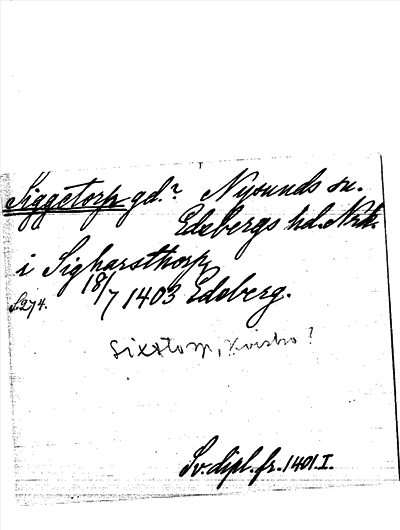 Siggetorp gd.? Nysunds sn.
Edsbergs hd. Nrk.
i Sigharsthorp
S. 274. 18/7 1403 Edsberg.
Sixstorp, Kvistbro?
Sv. dipl. fr. 1401. I.